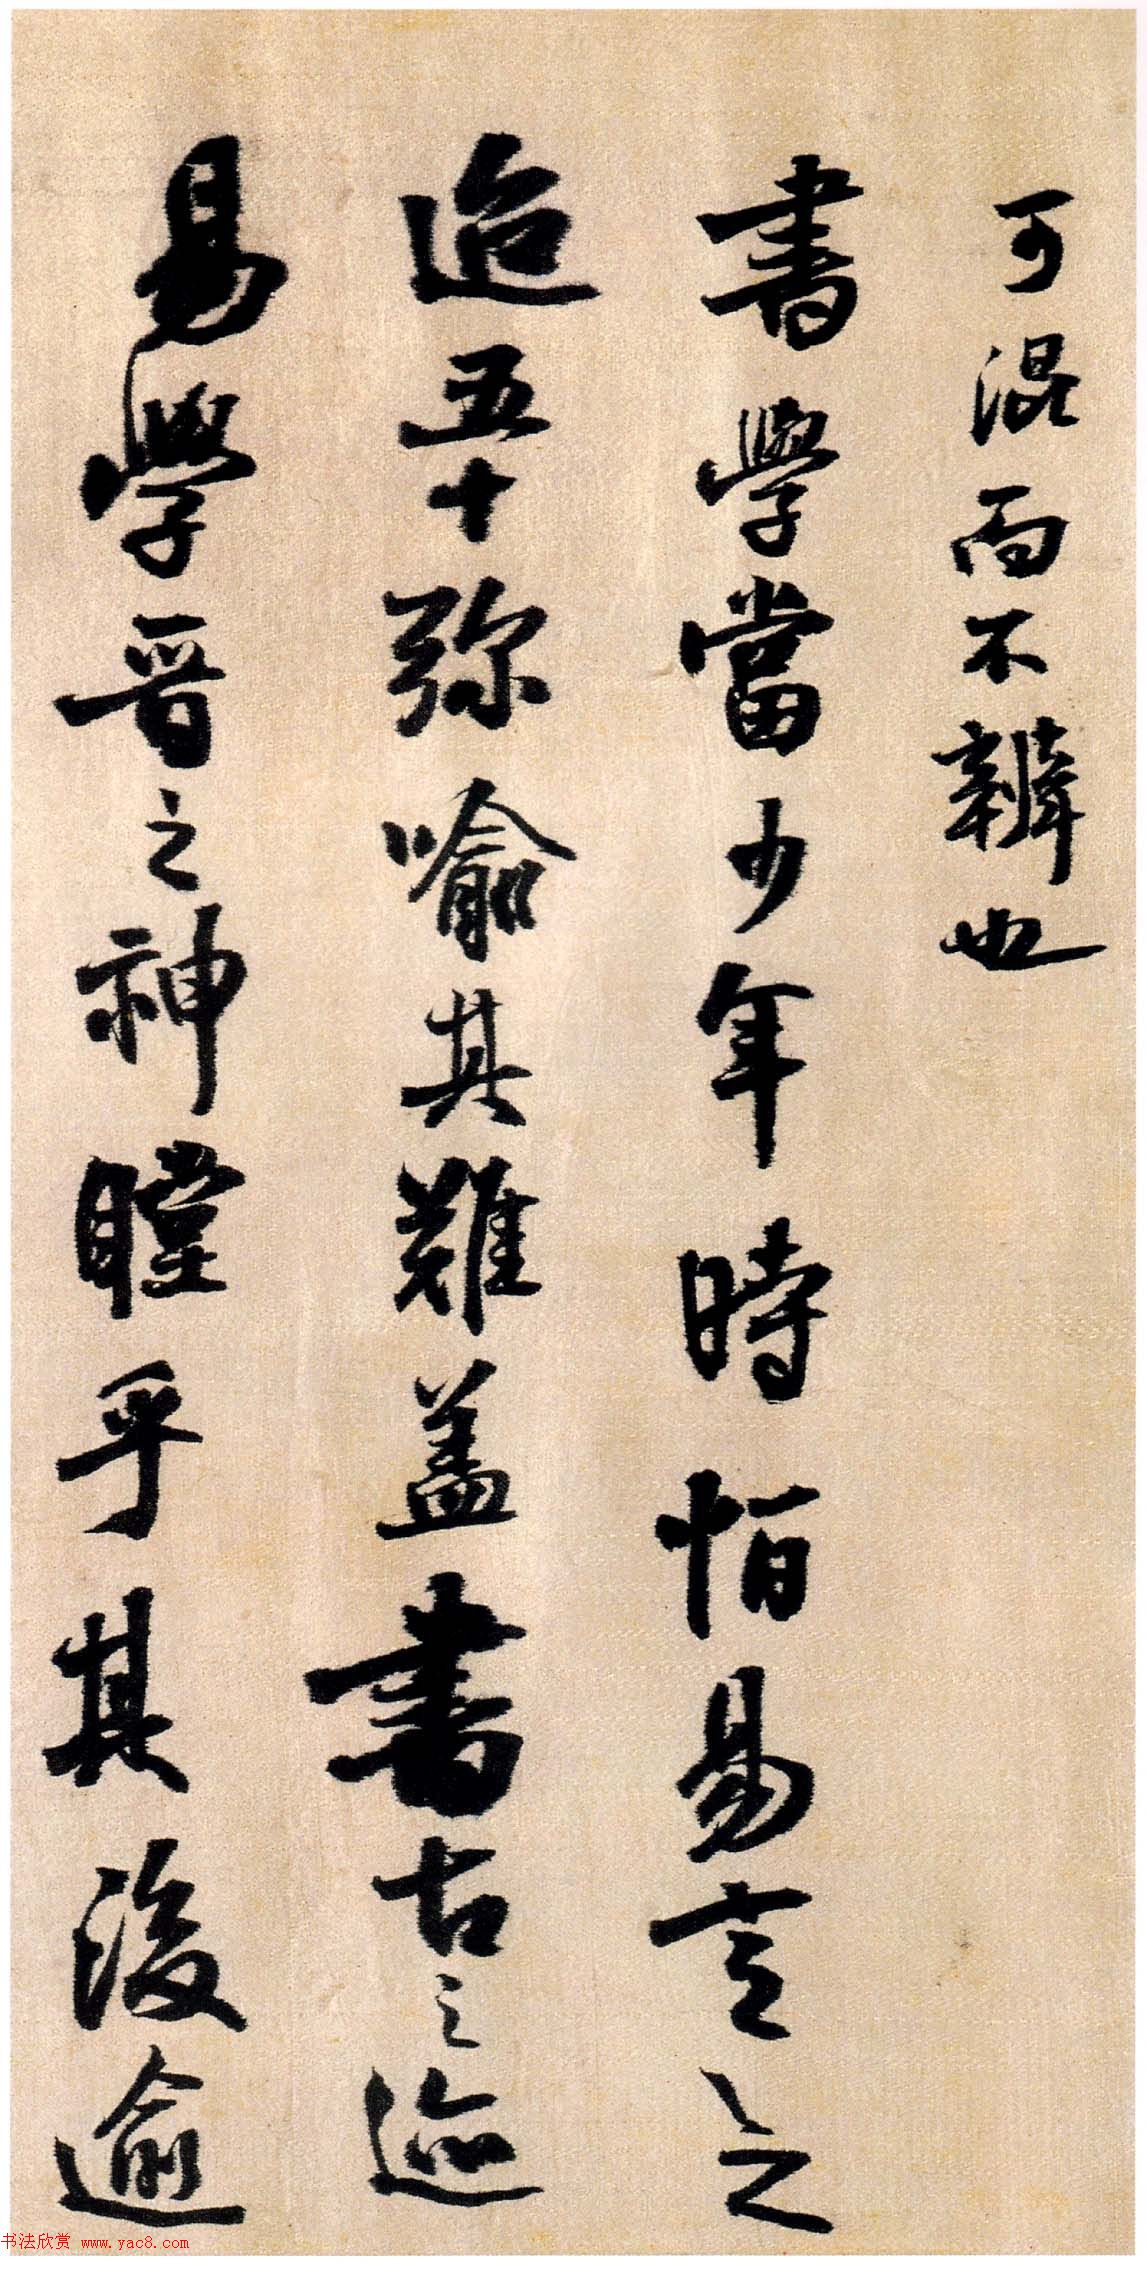 可混而不辨也
書學當少年時怕易言之
迨五十弥喻其難蓋書古之迹
易學晋之神瞠乎其後逾
书法欣赏 www.yac8.com